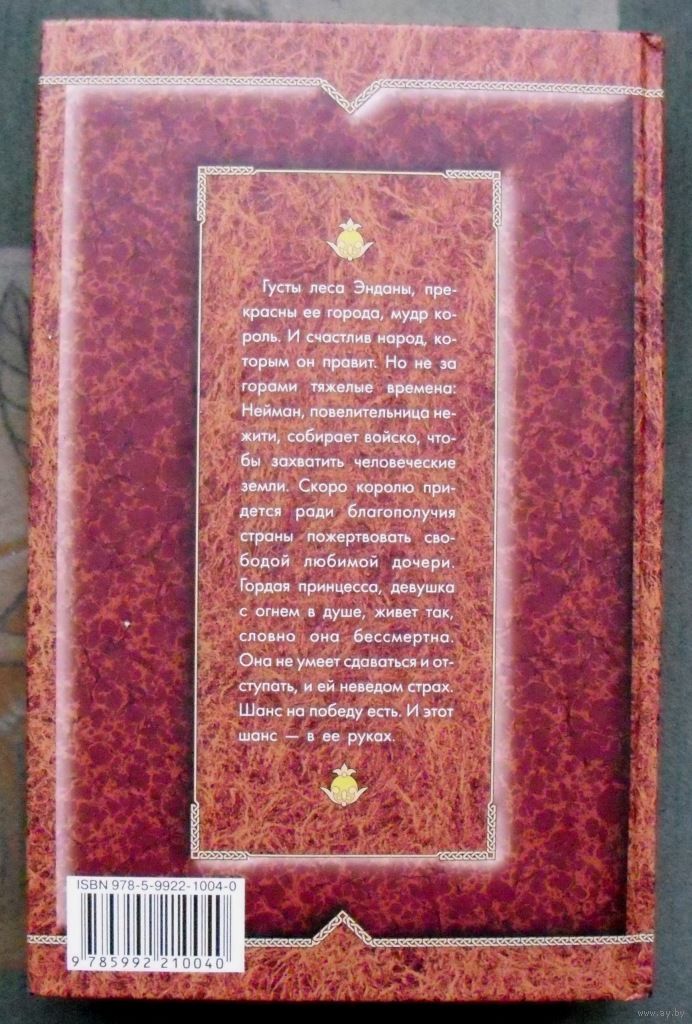 Густы леса Энданы, пре-
красны ее города, мудр ко-
роль. И счастлив народ, ко-
торым он правит. Но не за
горами тяжелые времена:
Нейман, повелительница не-
жити, собирает войско, что-
бы захватить человеческие
земли. Скоро королю при-
дется ради благополучия
страны пожертвовать сво-
бодой любимой дочери.
Гордая принцесса, девушка
с огнем в душе, живет так,
словно она бессмертна.
Она не умеет сдаваться и от-
ступать, и ей неведом страх.
Шанс на победу есть. И этот
шанс — в ее руках.
ISBN 978-5-9922-1004-0
9 785992 210040
www.ay.by